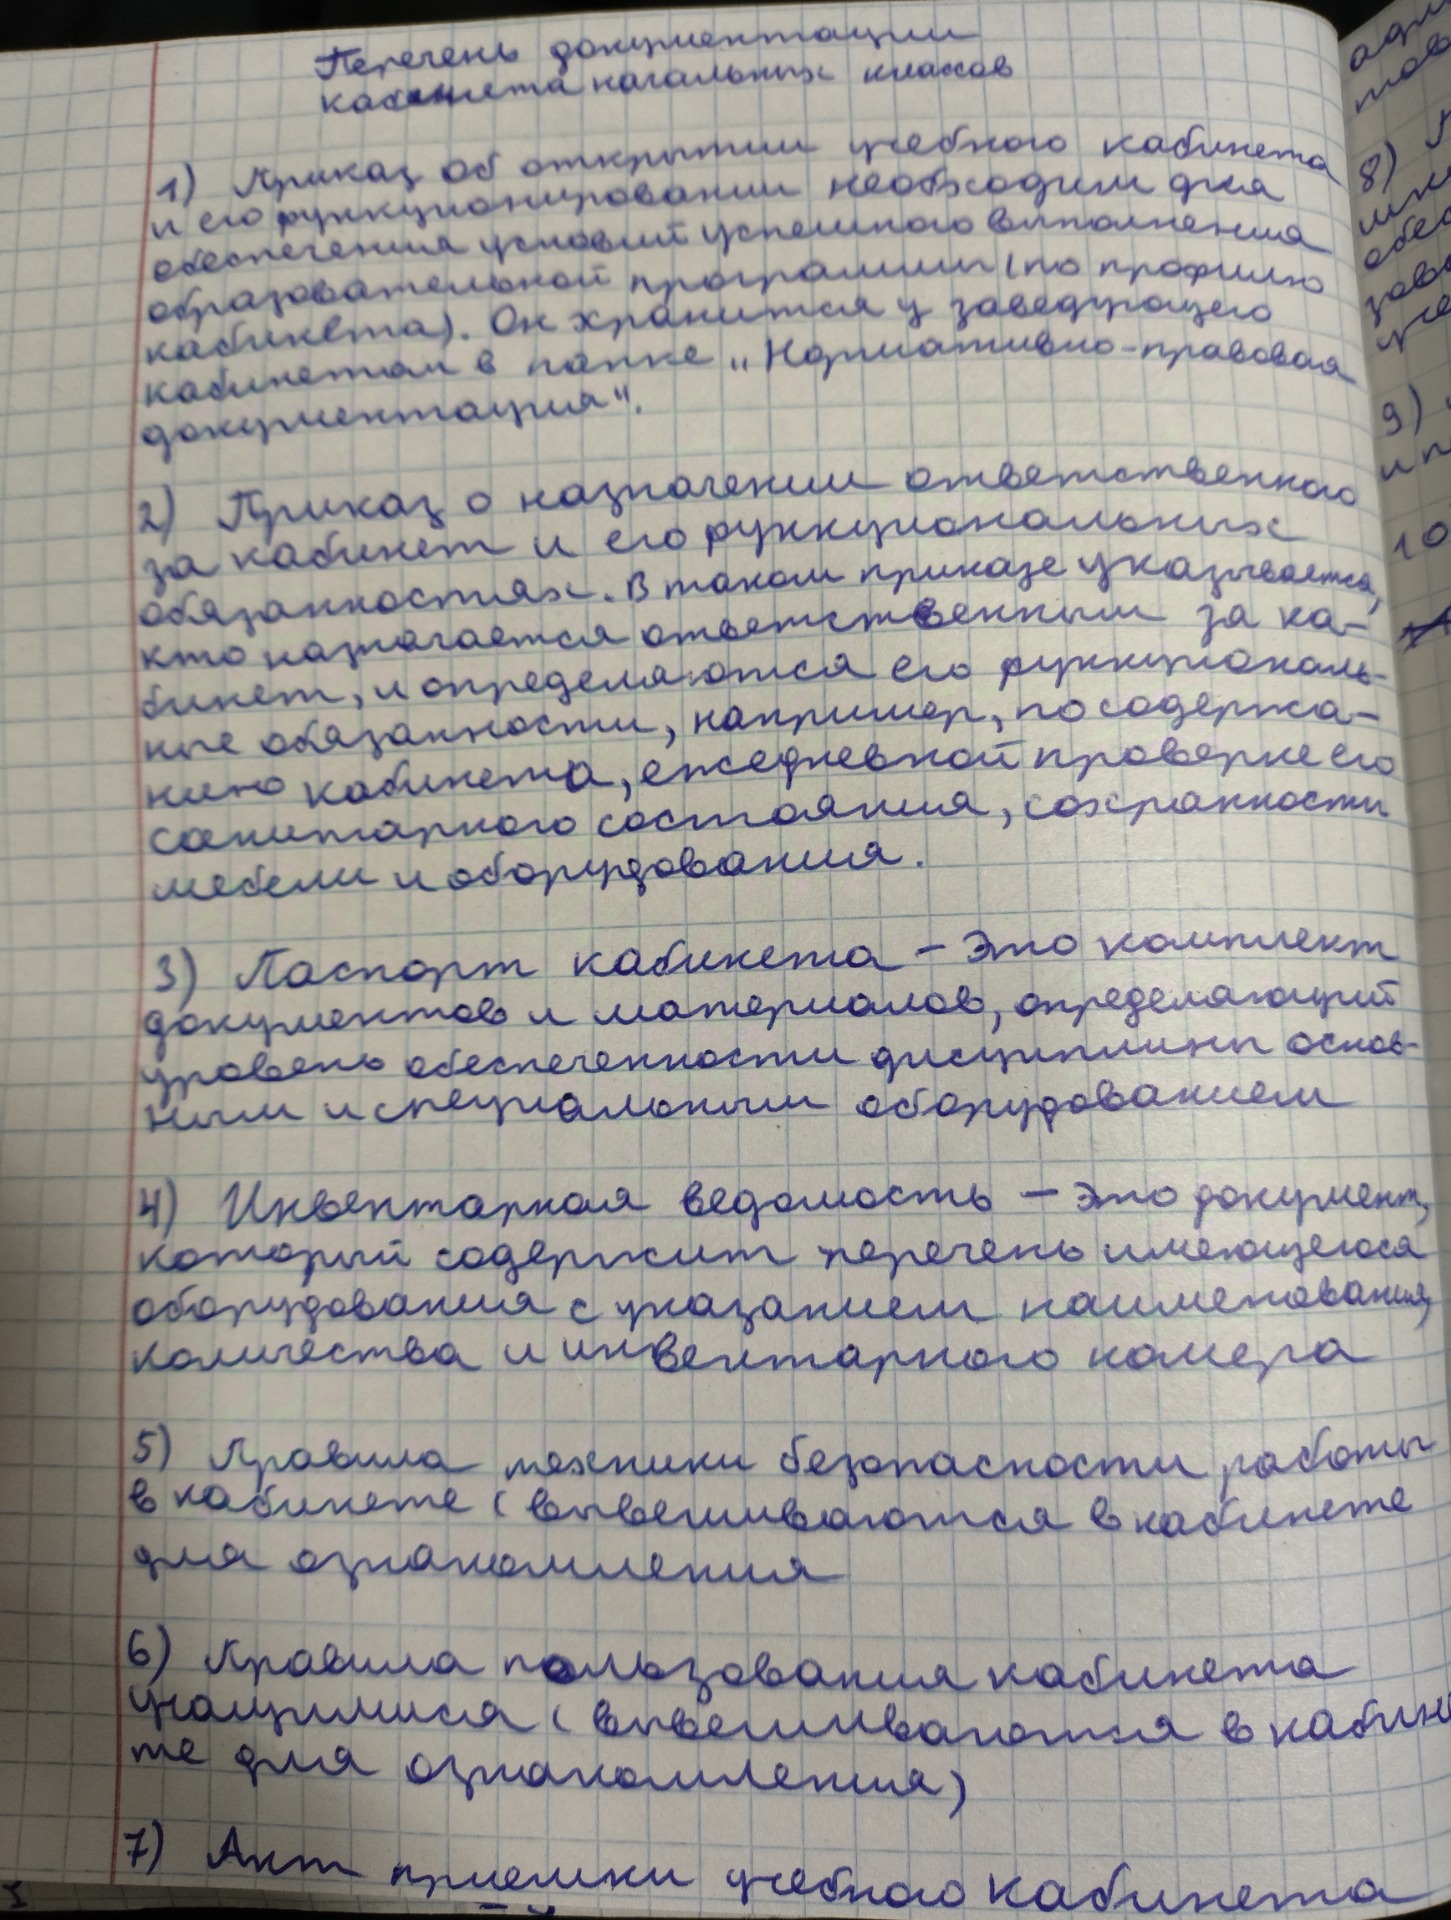 Перечень документации
кабинета начальных классов
1) Приказ об открытии учебного кабинета
и его функционировании необходим для
обеспечения условий успешного выполнения
образовательной программы (по профилю
кабинета). Он хранится у заведующего
кабинетом в папке „Нормативно-правовая
документация".
2) Приказ о назначении ответственного
за кабинет и его функциональных
обязанностях. В таком приказе указывается,
кто назначается ответственным за ка-
бинет, и определяются его функциональ-
ные обязанности, например, по содержа-
нию кабинета, ежедневной проверке его
санитарного состояния, сохранности
мебели и оборудования.
3) Паспорт кабинета – это комплект
документов и материалов, определяющий
уровень обеспеченности дисциплины основ-
ным и специальным оборудованием
4) Инвентарная ведомость – это документ,
который содержит перечень имеющегося
оборудования с указанием наименования,
количества и инвентарного номера
5) Правила техники безопасности работы
в кабинете (вывешиваются в кабинете
для ознакомления
6) Правила пользования кабинета
учащимися (вывешиваются в кабине
те для ознакомления)
7) Акт приемки учебного кабинета
8)
9)
и п
10